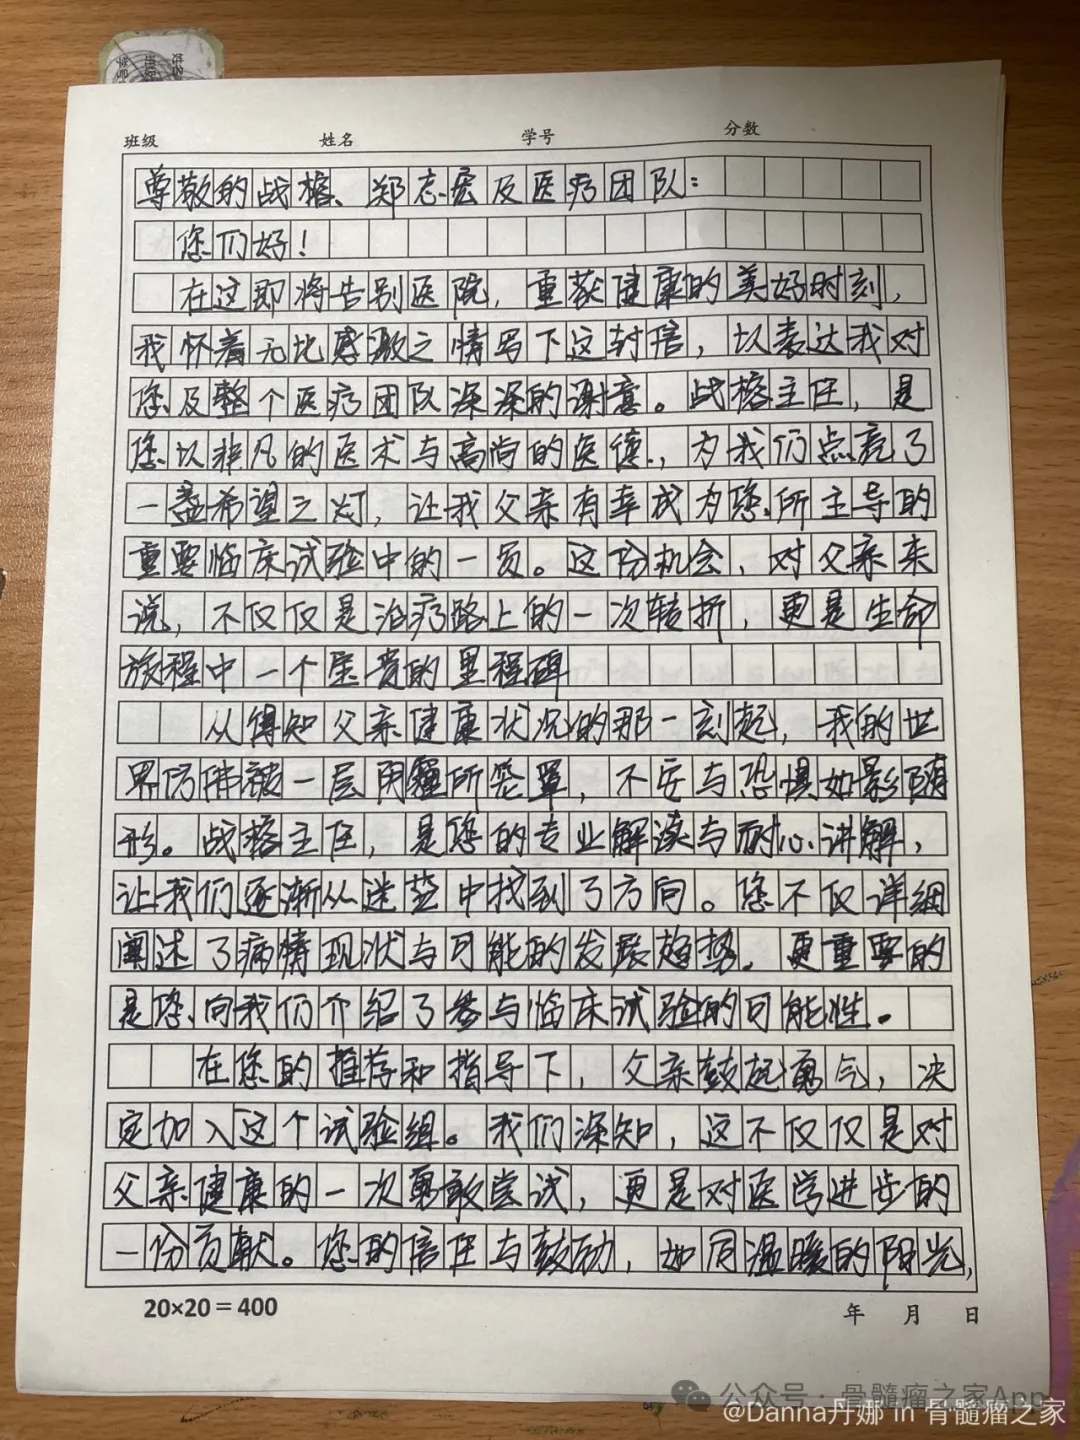 班级 姓名 学号 分数
尊敬的战榕、郑志宏及医疗团队：
您们好！
在这即将告别医院，重获健康的美好时刻，
我怀着无比感激之情写下这封信，以表达我对
您及整个医疗团队深深的谢意。战榕主任，是
您以非凡的医术与高尚的医德，为我们点亮了
一盏希望之灯，让我父亲有幸成为您所主导的
重要临床试验中的一员。这份机会，对父亲来
说，不仅仅是治疗路上的一次转折，更是生命
旅程中一个宝贵的里程碑
从得知父亲健康状况的那一刻起，我的世
界仿佛被一层阴霾所笼罩，不安与恐惧如影随
形。战榕主任，是您的专业解读与耐心讲解，
让我们逐渐从迷茫中找到了方向。您不仅详细
阐述了病情现状与可能的发展趋势，更重要的
是您向我们介绍了参与临床试验的可能性。
在您的推荐和指导下，父亲鼓起勇气，决
定加入这个试验组。我们深知，这不仅仅是对
父亲健康的一次勇敢尝试，更是对医学进步的
一份贡献。您的信任与鼓励，如同温暖的阳光，
20×20＝400 年 月 日
公众号·骨髓瘤之家App
@Danna丹娜 in 骨髓瘤之家